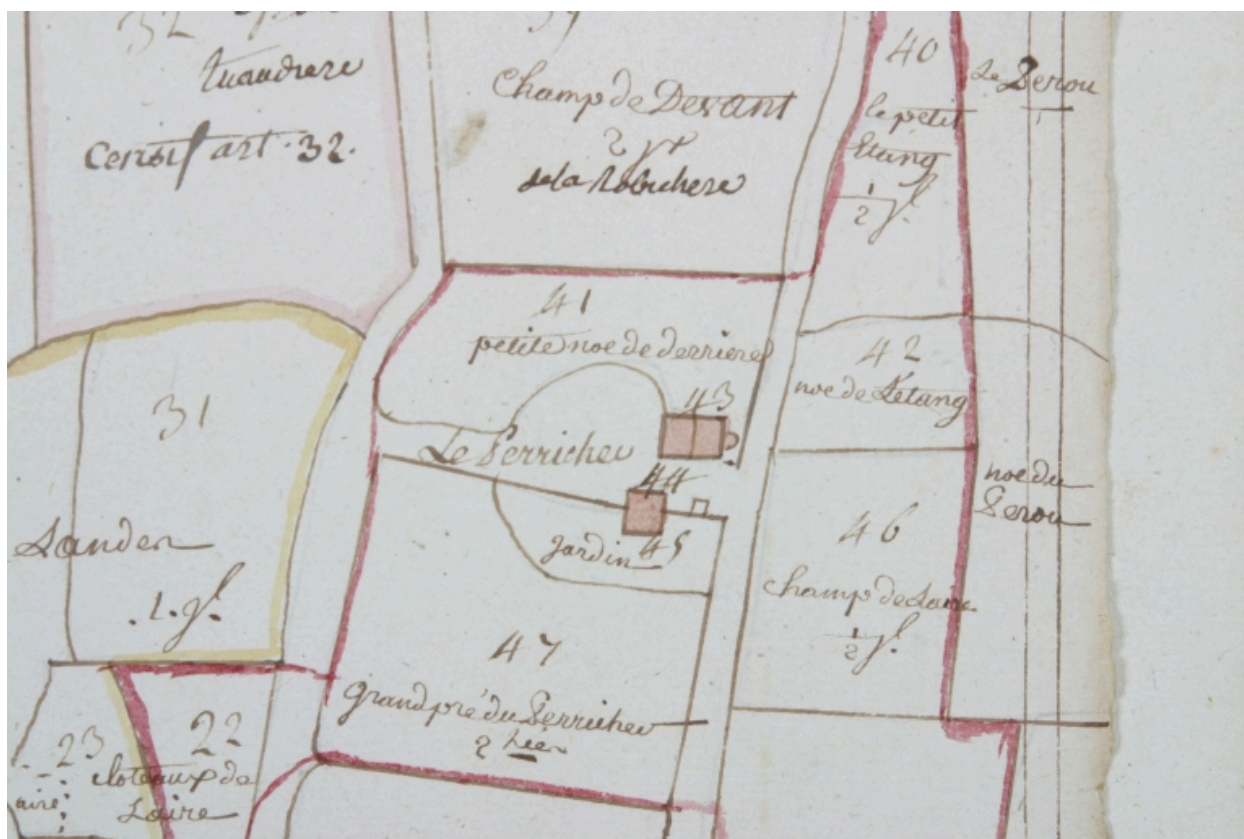 32
tuaudrere
Censif art. 32.
Champ de Devant
2 jx
de la Robichere
40
le petit
Etang
1/2 jl.
Le Perou
41
petite noe de derriere
42
noe de L'étang
43
Le Perricher
44
45
Jardin
noe du
Perou
46
Champ de Laire
1/2 jl.
31
Landes
1. jl.
47
Grand pré du Perricher
2 hées
23
aire
22
cloteaux de
Laire